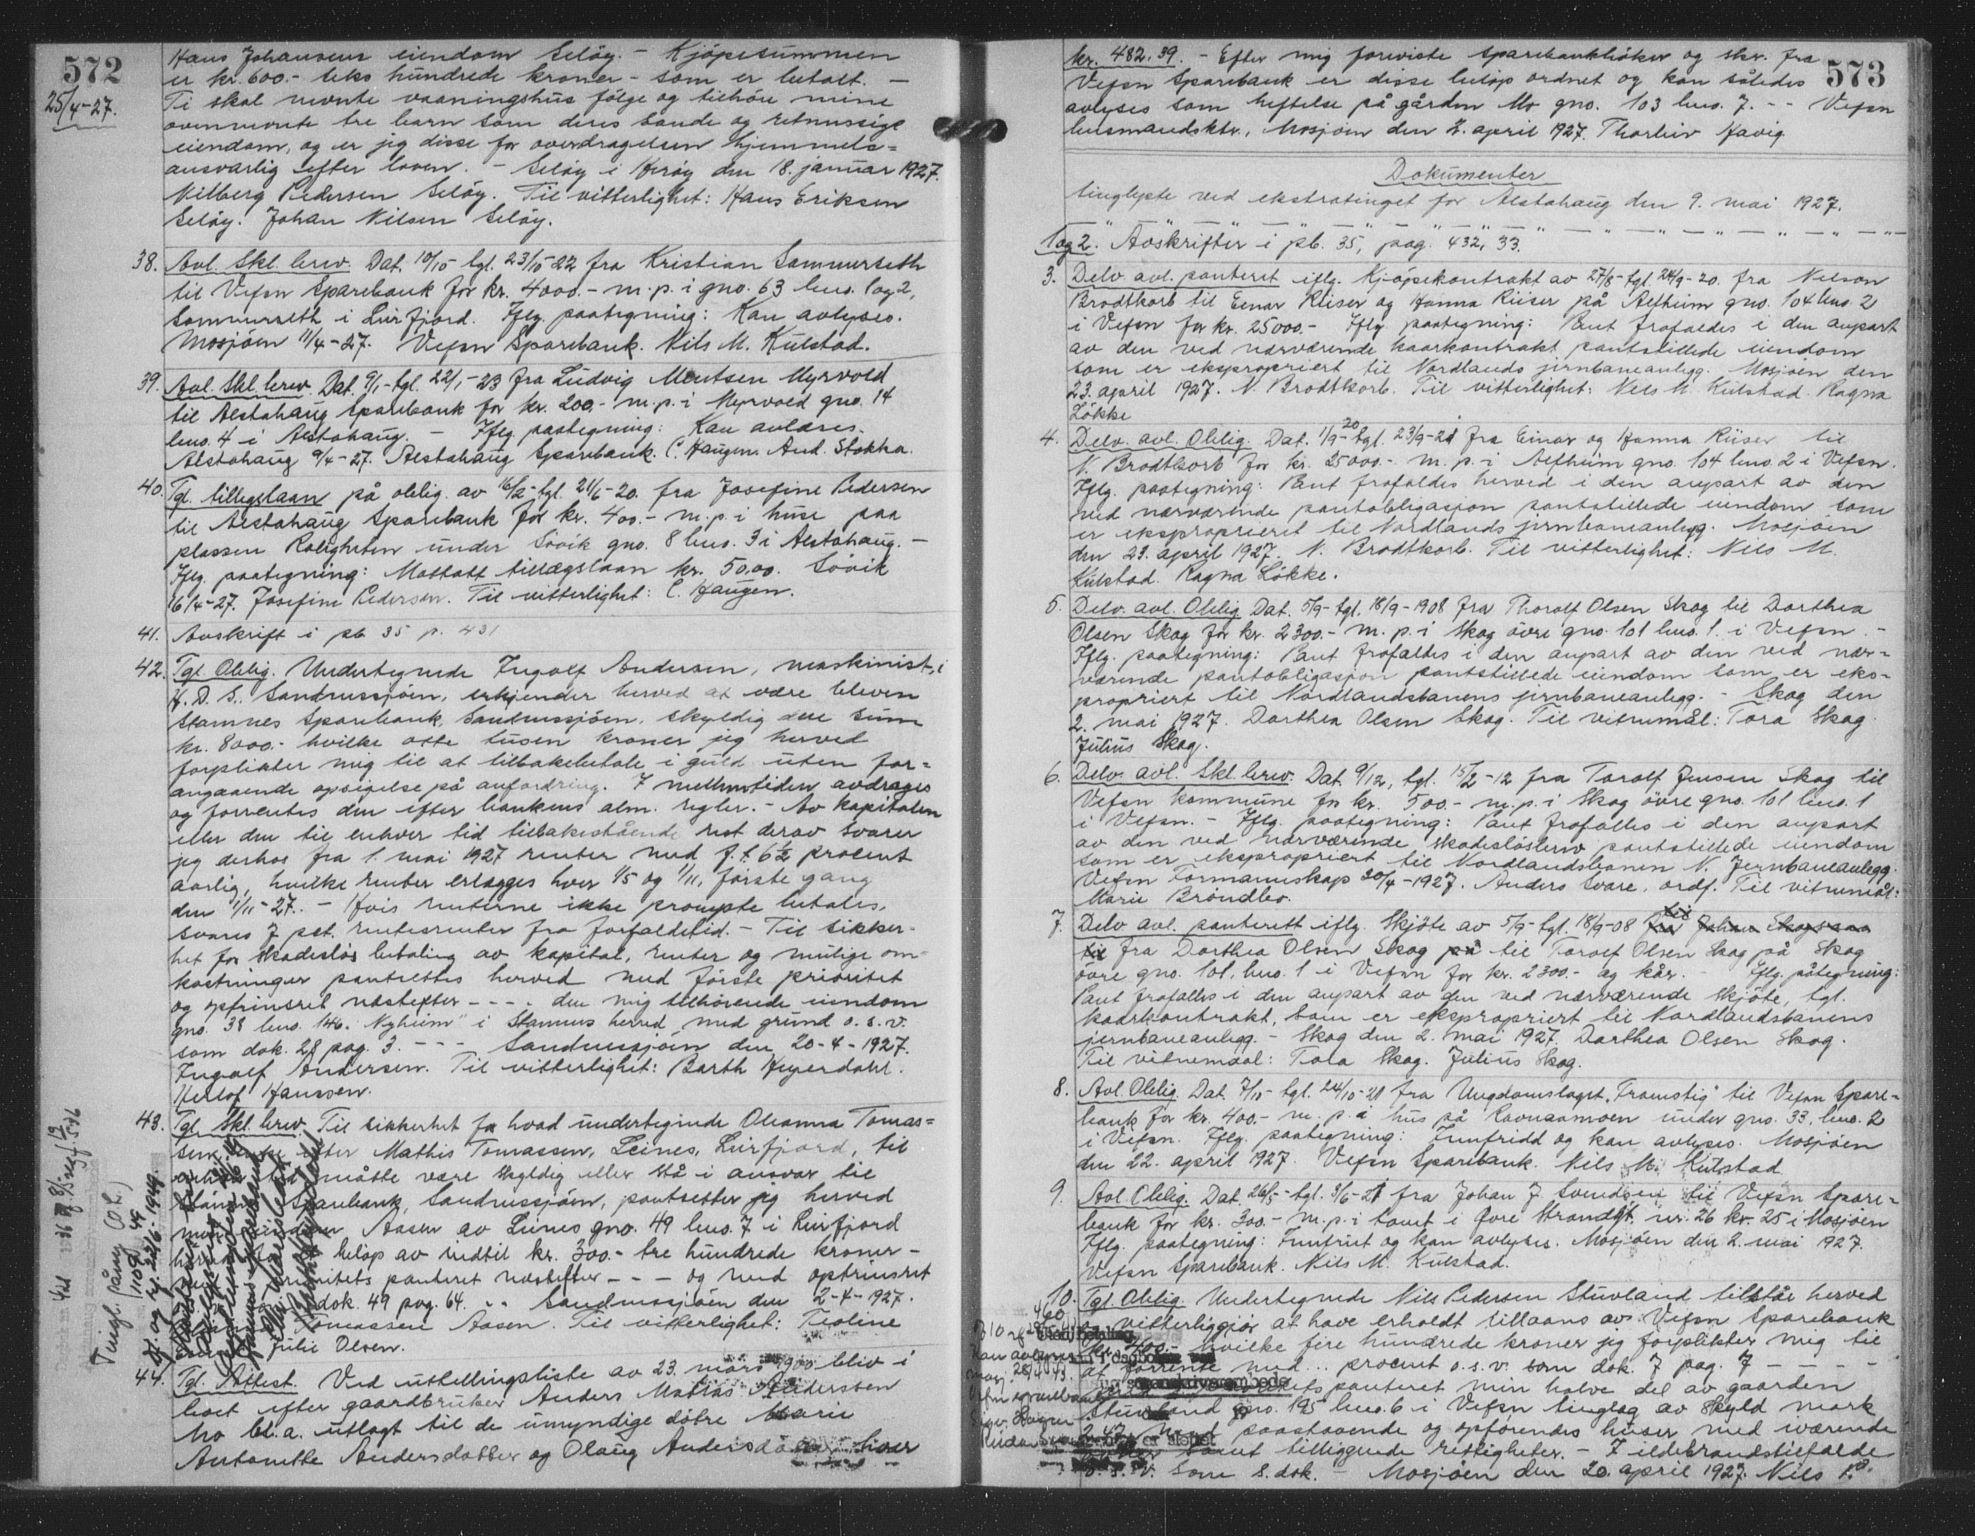 572
25/4-27.
Hans Johansens eiendom Seløy. - Kjøpesummen
er kr. 600.- seks hundrede kroner - som er betalt. -
Ti skal nevnte vaaningshus følge og tilhøre mine
ovennevnte tre barn som deres sande og retmessige
eiendom, og er jeg disse for overdragelsen hjemmels=
ansvarlig efter loven. - Seløy i Herøy den 18. januar 1927.
Vilberg Pedersen Seløy. Til vitterlighet: Hans Eriksen
Seløy. Johan Nilsen Seløy.
38. Avl. Skl. brev. Dat. 10/10 tgl. 23/10-22 fra Kristian Sommerseth
til Vefsn Sparebank for kr. 4000.- m.p. i gno. 63 bno. 1 og 2,
Sommerseth i Leirfjord. Iflg. paategning: Kan avlyses.
Mosjøen 11/4-27. Vefsn Sparebank. Nils M. Kulstad.
39. Avl. Skl. brev. Dat. 9/1- tgl. 22/1-23 fra Ludvig Mentsen Myrvold
til Alstahaug Sparebank for kr. 200.- m.p. i Myrvold gno. 14
bno. 4 i Alstahaug. - Iflg. paategning: Kan avlæses.
Alstahaug 9/4-27. Alstahaug Sparebank. C. Haugen. And. Stokka.
40. Tgl. tillegslaan på oblig. av 16/2- tgl. 21/6-20. fra Josefine Pedersen
til Alstahaug Sparebank for kr. 400.- m.p. i huse paa
plassen Roligheten under Søvik gno. 8 bno. 3 i Alstahaug. -
Iflg. paategning: Mottatt tillægslaan kr. 50,00. Søvik
16/4-27. Josefine Pedersen. Til vitterlighet: C. Haugen.
41. Avskrift i pb 35 p. 431
42. Tgl. Oblig. Undertegnede Ingolf Andersen, maskinist, i
H. D. S. Sandnessjøen, erkjender herved at være bleven
Stamnes Sparebank, Sandnessjøen, skyldig den sum
kr. 8000.- hvilke otte tusen kroner jeg herved
forplikter mig til at tilbakebetale i guld uten for-
angaaende opsigelse på anfordring. I mellemtiden avdrages
og forrentes den efter bankens alm. regler. - Av kapitalen
eller den til enhver tid tilbakestående rest derav svarer
jeg derhos fra 1. mai 1927 renter med f.t. 6½ procent
aarlig, hvilke renter erlægges hver 1/5 og 1/11, første gang
den 1/11-27. - Hvis renterne ikke prompte betales,
svares 7 pct. rentesrenter fra forfaldstid. - Til sikker-
het for skadesløs betaling av kapital, renter og mulige om-
kostninger pantsettes herved med første prioritet
og opfrinsret næstefter - - - - den mig tilhørende eiendom
gno. 38 bno. 146. "Nyheim" i Stamnes herred, med grund o.s.v.
som dok. 28 pag. 3. - - - Sandnessjøen den 20-4-1927.
Ingolf Andersen. Til vitterlighet: Barth Heyerdahl.
Herlof Hanssen.
43. Tgl. Skl. brev. Til sikkerhet for hvad undertegnede Oleanna Tomas=
sen, enke efter Mathis Tomassen, Leines, Leirfjord, til
enhver tid måtte være skyldig eller stå i ansvar til
Stamnes Sparebank, Sandnessjøen, pantsetter jeg herved
min eiendom Aasen av Leines gno. 49 bno. 7 i Leirfjord
beløp av indtil kr. 300.- tre hundrede kroner -
prioritets panteret næstefter - - - og med opfrinsret
dok. 49 pag. 64. - - Sandnessjøen den 2-4-1927.
Tomassen Aasen. Til vitterlighet: Teoline
Julie Olsen.
44. Tgl. Attest. Ved utskiftningsliste av 23. mars 1900 blev i
boet efter gaardbruker Anders Matias Andersen
Mo bl.a. utlagt til de umyndige døtre Marie
Antonette Andersdatter og Olaug Andersdatter, hver
573
kr. 482.39. - Efter mig foreviste sparebankbøker og skr. fra
Vefsn Sparebank er disse beløp ordnet og kan således
avlyses som heftelse på gården Mo gno. 103 bno. 7. - - Vefsn
lensmandsktr., Mosjøen den 2. april 1927. Thorleiv Havig
Dokumenter
tinglyste ved ekstratinget for Alstahaug den 9. mai 1927.
1 og 2. Avskrifter i pb. 35, pag. 432, 33.
3. Delv. avl. panteret iflg. Kjøpekontrakt av 27/8- tgl. 24/9-20. fra Nelson
Brodtkorb til Einar Riiser og Hanna Riiser på Alfheim gno. 104 bno 2
i Vefsn for kr. 25000.- Iflg. paategning: Pant frafaldes i den anpart
av den ved nærværende kaarkontrakt pantstillede eiendom
som er ekspropriert til Nordlands jernbaneanlegg. Mosjøen den
23. april 1927. N. Brodtkorb. Til vitterlighet: Nils M. Kulstad. Ragna
Løkke
4. Delv. avl. Oblig. Dat. 1/9-20 tgl. 23/9-21 fra Einar og Hanna Riiser til
N. Brodtkorb for kr. 25000.- m.p. i Alfheim gno. 104 bno. 2 i Vefsn.
Iflg. paategning: Pant frafaldes herved i den anpart av den
ved nærværende pantobligasjon pantstillede eiendom som
er ekspropriert til Nordlands jernbaneanlegg. Mosjøen
den 23. april 1927. N. Brodtkorb. Til vitterlighet: Nils M.
Kulstad. Ragna Løkke.
5. Delv. avl. Oblig. Dat. 5/9- tgl. 18/9-1908 fra Thorolf Olsen Skog til Dorthea
Olsen Skog for kr. 2300.- m.p. i Skog øvre gno. 101 bno. 1. i Vefsn. -
Iflg. paategning: Pant frafaldes i den anpart av den ved nær-
værende pantobligasjon pantstillede eiendom som er eks-
propriert til Nordlandsbanens jernbaneanlegg. - Skog den
2. mai 1927. Dorthea Olsen Skog. Til vitnemål: Tora Skog.
Julius Skog.
6. Delv. avl. Skl. brev. Dat. 9/12, tgl. 15/2-12 fra Torolf Jensen Skog til
Vefsn kommune for kr. 500.- m.p. i Skog øvre gno. 101 bno. 1
i Vefsn. - Iflg. paategning: Pant frafalles i den anpart
av den ved nærværende skadesløsbrev pantstillede eiendom
som er ekspropriert til Nordlandsbanen N. Jernbaneanlegg.
Vefsn Formannskap 20/4-1927. Anders Svare, ordf. Til vitnemål:
Marie Brøndbo.
7. Delv. avl. panterett iflg. Skjøte av 5/9- tgl. 18/9-08
fra Dorthea Olsen Skog til Torolf Olsen Skog på Skog
øvre gno. 101, bno. 1 i Vefsn for kr. 2300.- og kår. - Iflg. påtegning:
Pant frafalles i den anpart av den ved nærværende skjøte, tgl.
kaarkontrakt, som er ekspropriert til Nordlandsbanens
jernbaneanlegg. - Skog den 2. mai 1927. Dorthea Olsen Skog.
Til vitnemaal: Tora Skog. Julius Skog.
8. Avl. Oblig. Dat. 7/10- tgl. 24/10-21 fra Ungdomslaget "Framstig" til Vefsn Spare-
bank for kr. 400.- m.p. i hus på Ravnaamoen under gno. 33, bno. 2
i Vefsn. Iflg. paategning: Innfridd og kan avlyses. Mosjøen
den 22. april 1927. Vefsn Sparebank. Nils M. Kulstad.
9. Avl. Oblig. Dat. 26/5- tgl. 3/6-21 fra Johan J. Svendsen til Vefsn Spare-
bank for kr. 300.- m.p. i tomt i Øvre Strandgt. nr. 26 kv. 25 i Mosjøen
Iflg. paategning: Innfriet og kan avlyses. Mosjøen den 2. mai 1927.
Vefsn Sparebank. Nils M. Kulstad.
10. Tgl. Oblig. Undertegnede Nils Pedersen Stuvland tilstår herved
og vitterliggjør at have erholdt tillaans av Vefsn Sparebank
kr. 400.- hvilke fire hundrede kroner jeg forplikter mig til
at forrente med .. procent o.s.v. som dok. 7 pag. 7 - - - -
panteret min halve del av gaarden
Stuvland gno. 195 bno. 6 i Vefsn tinglag av skyld mark
paastaaende og opførendes huser med iværende
samt tilliggende rettigheter. - I ildebrandstilfælde
o.s.v. som s. dok. - Mosjøen den 20. april 1927. Nils P.